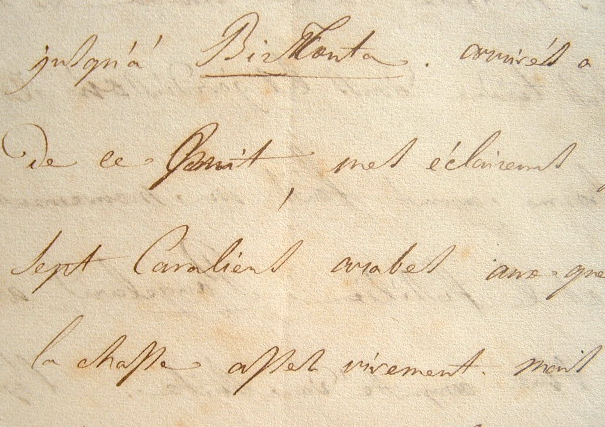 jusqu'à Birkanta. arrivés a
de ce Point, mes éclaireurs
sept Cavaliers arabes aux-que
la chasse assez vivement. mais